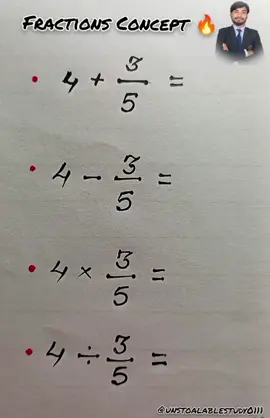 Fractions Concept 🔥
• 4 + 3/5 =
• 4 - 3/5 =
• 4 × 3/5 =
• 4 ÷ 3/5 =
@unstoalablestudy0111